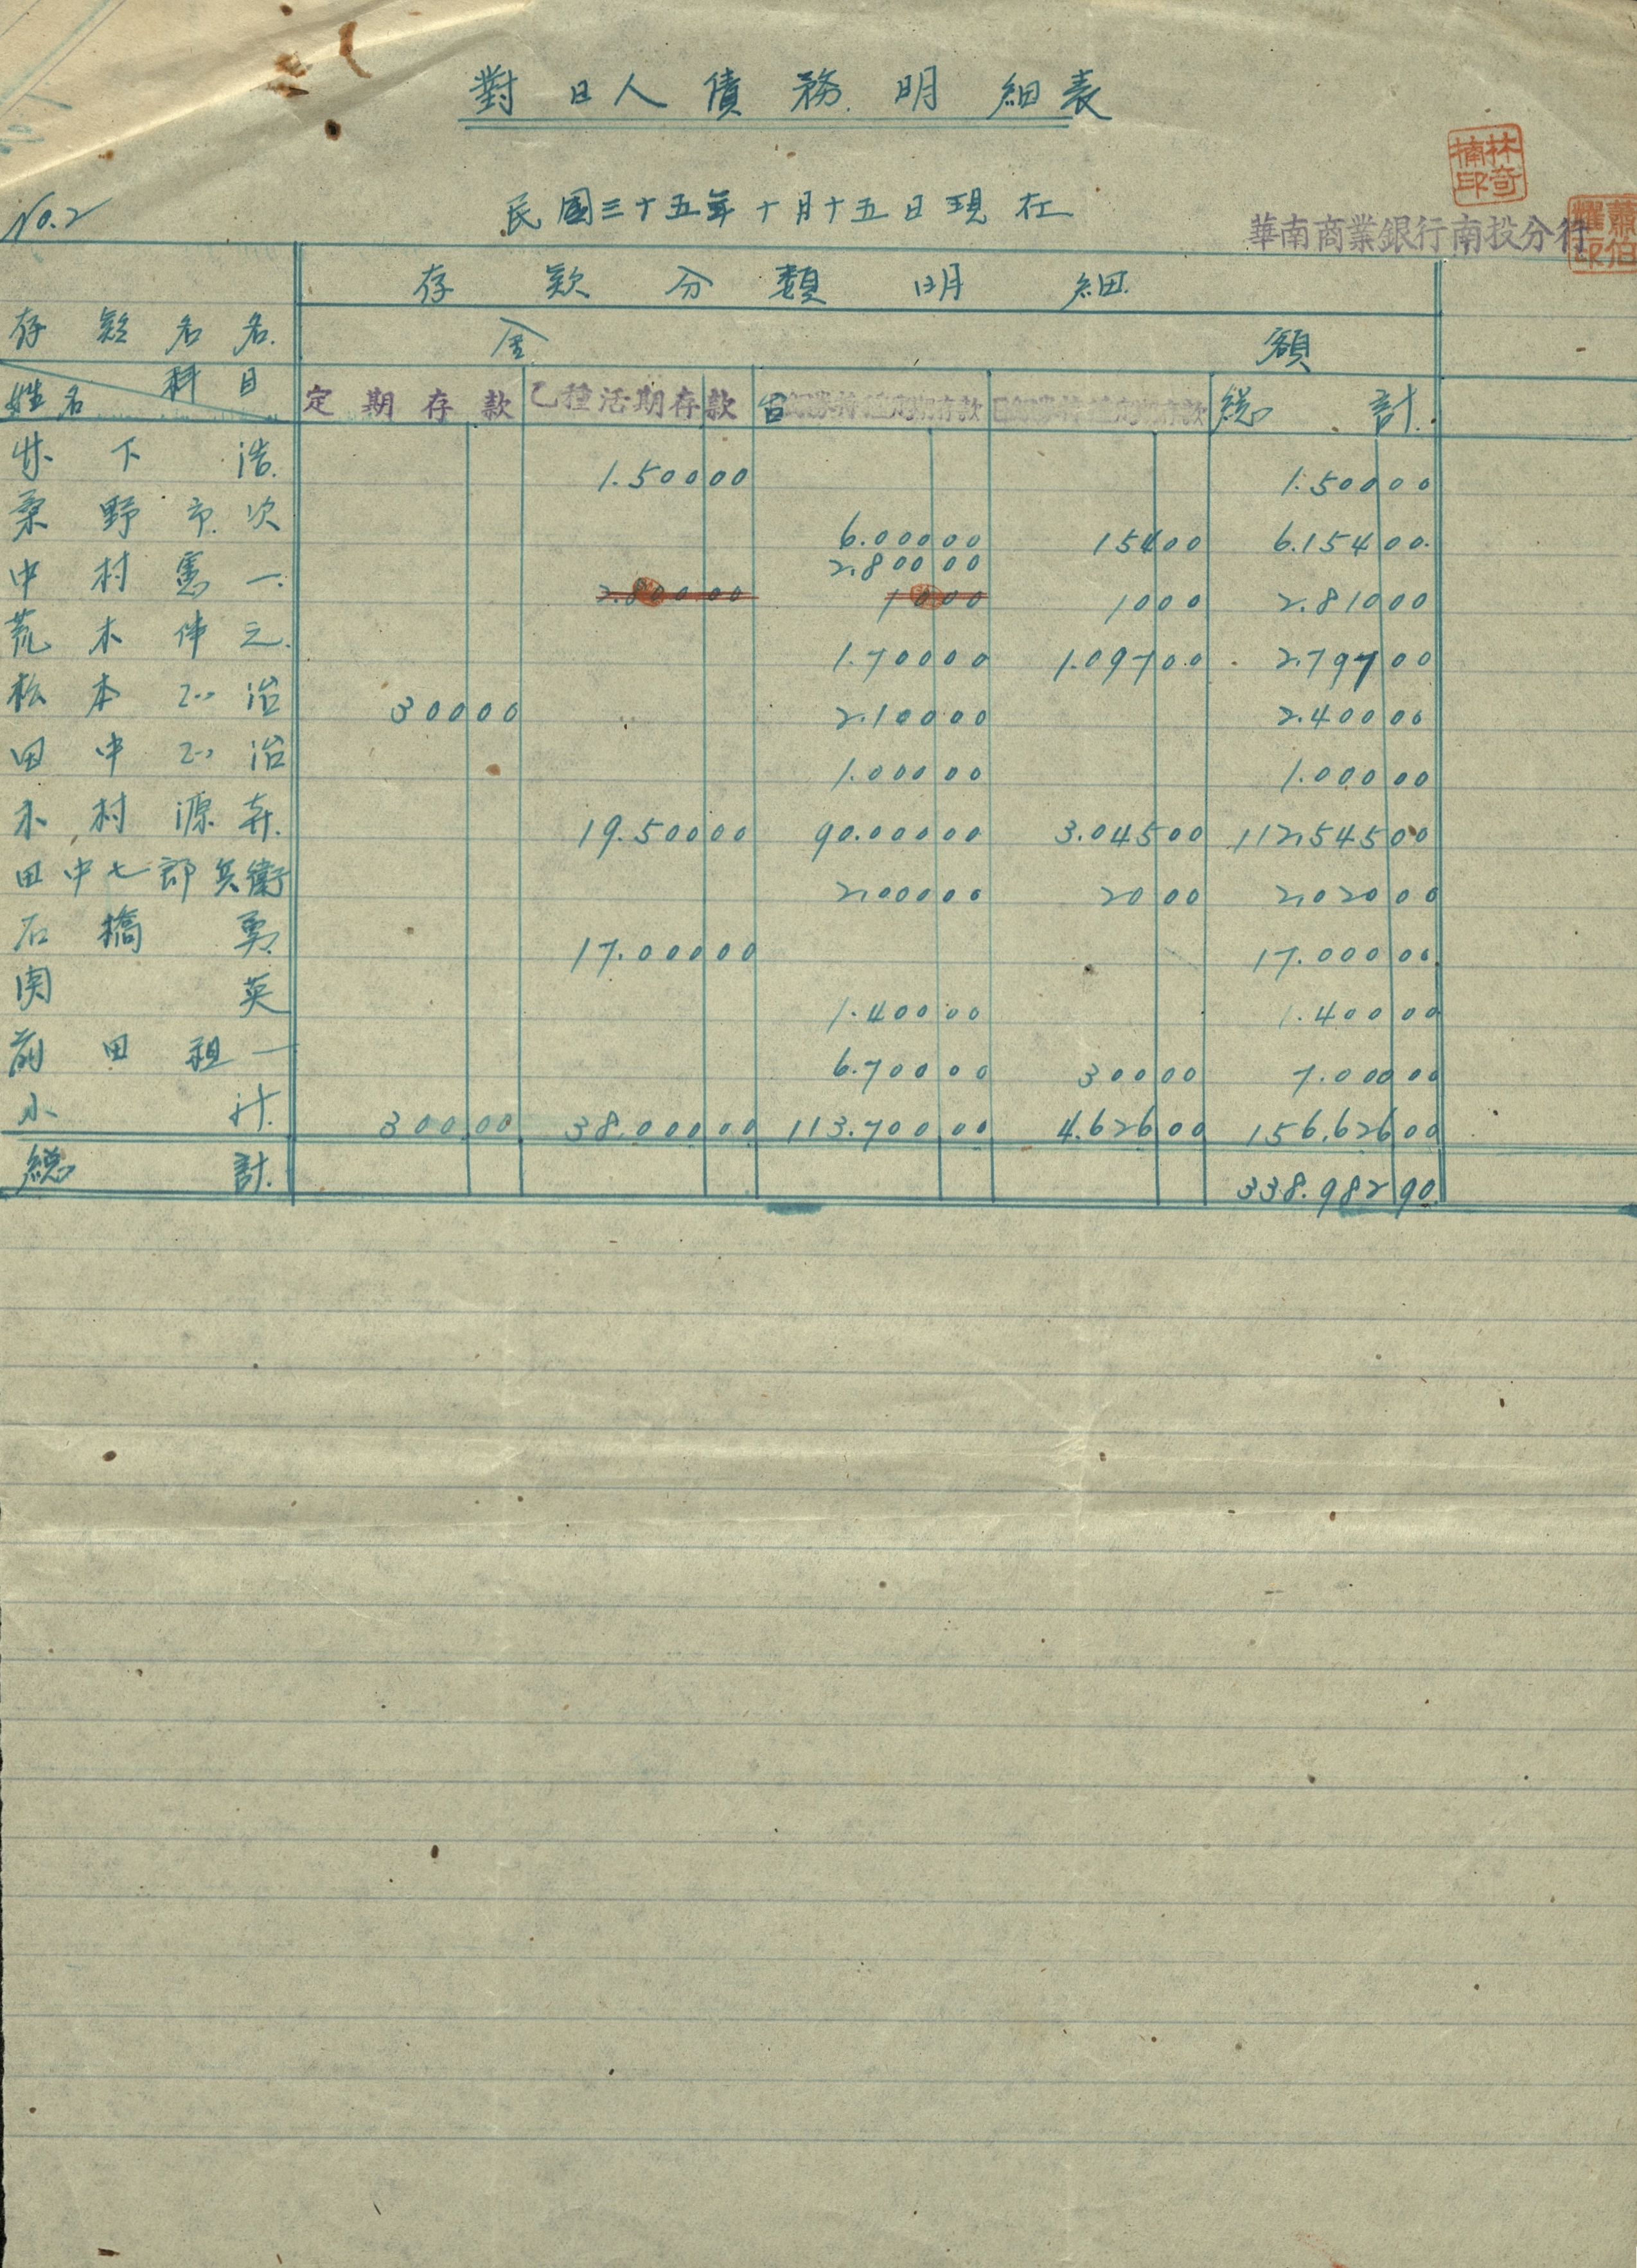 對日人債務明細表
林奇楠印
No.2
民國三十五年十月十五日現在
華南商業銀行南投分行
蕭伯耀印
存款分類明細
存款名名
金額
科目
姓名
定期存款 乙種活期存款 台 期存款 款 総計
下浩 1.500 00 1.500 00
桑野市次 6.000 00 154 00 6.154 00
2.800 00
中村憲一 2.800 00 10 00 10 00 2.810 00
荒木伸之 1.700 00 1.097 00 2.797 00
松本正治 300 00 2.100 00 2.400 00
田中正治 1.000 00 1.000 00
木村源 19.500 00 90.000 00 3.045 00 112.545 00
田中七郎兵衛 2.000 00 20 00 2.020 00
石橋勇 17.000 00 17.000 00
関英 1.400 00 1.400 00
前田祖一 6.700 00 300 00 7.000 00
小計 300 00 38.000 00 113.700 00 4.626 00 156.626 00
総計 338.982 90